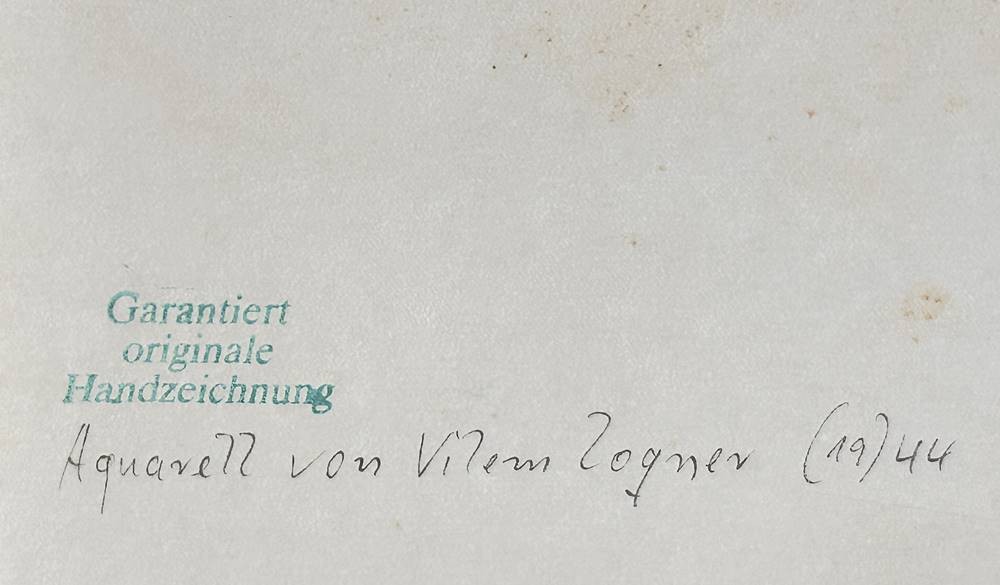 Garantiert
originale
Handzeichnung
Aquarell von Vilem (19)44